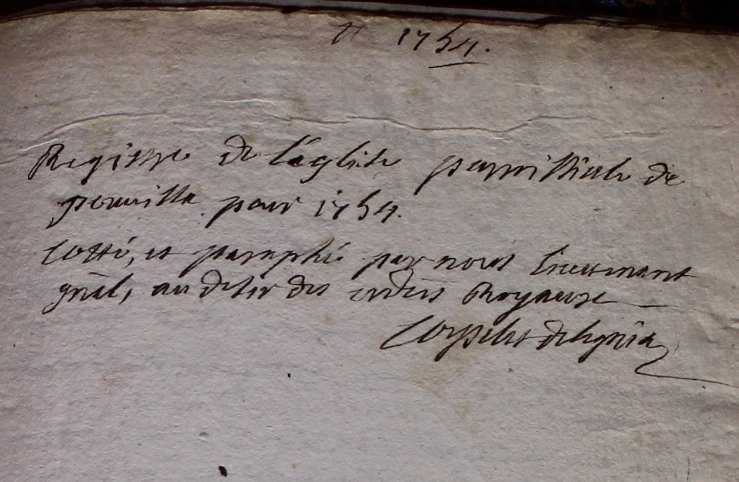 1754.
Registre de l'église parroissiale de
pour 1754.
Cotté, et paraphé par nous Lieutenant
gnal, au desir des ordres Royaux